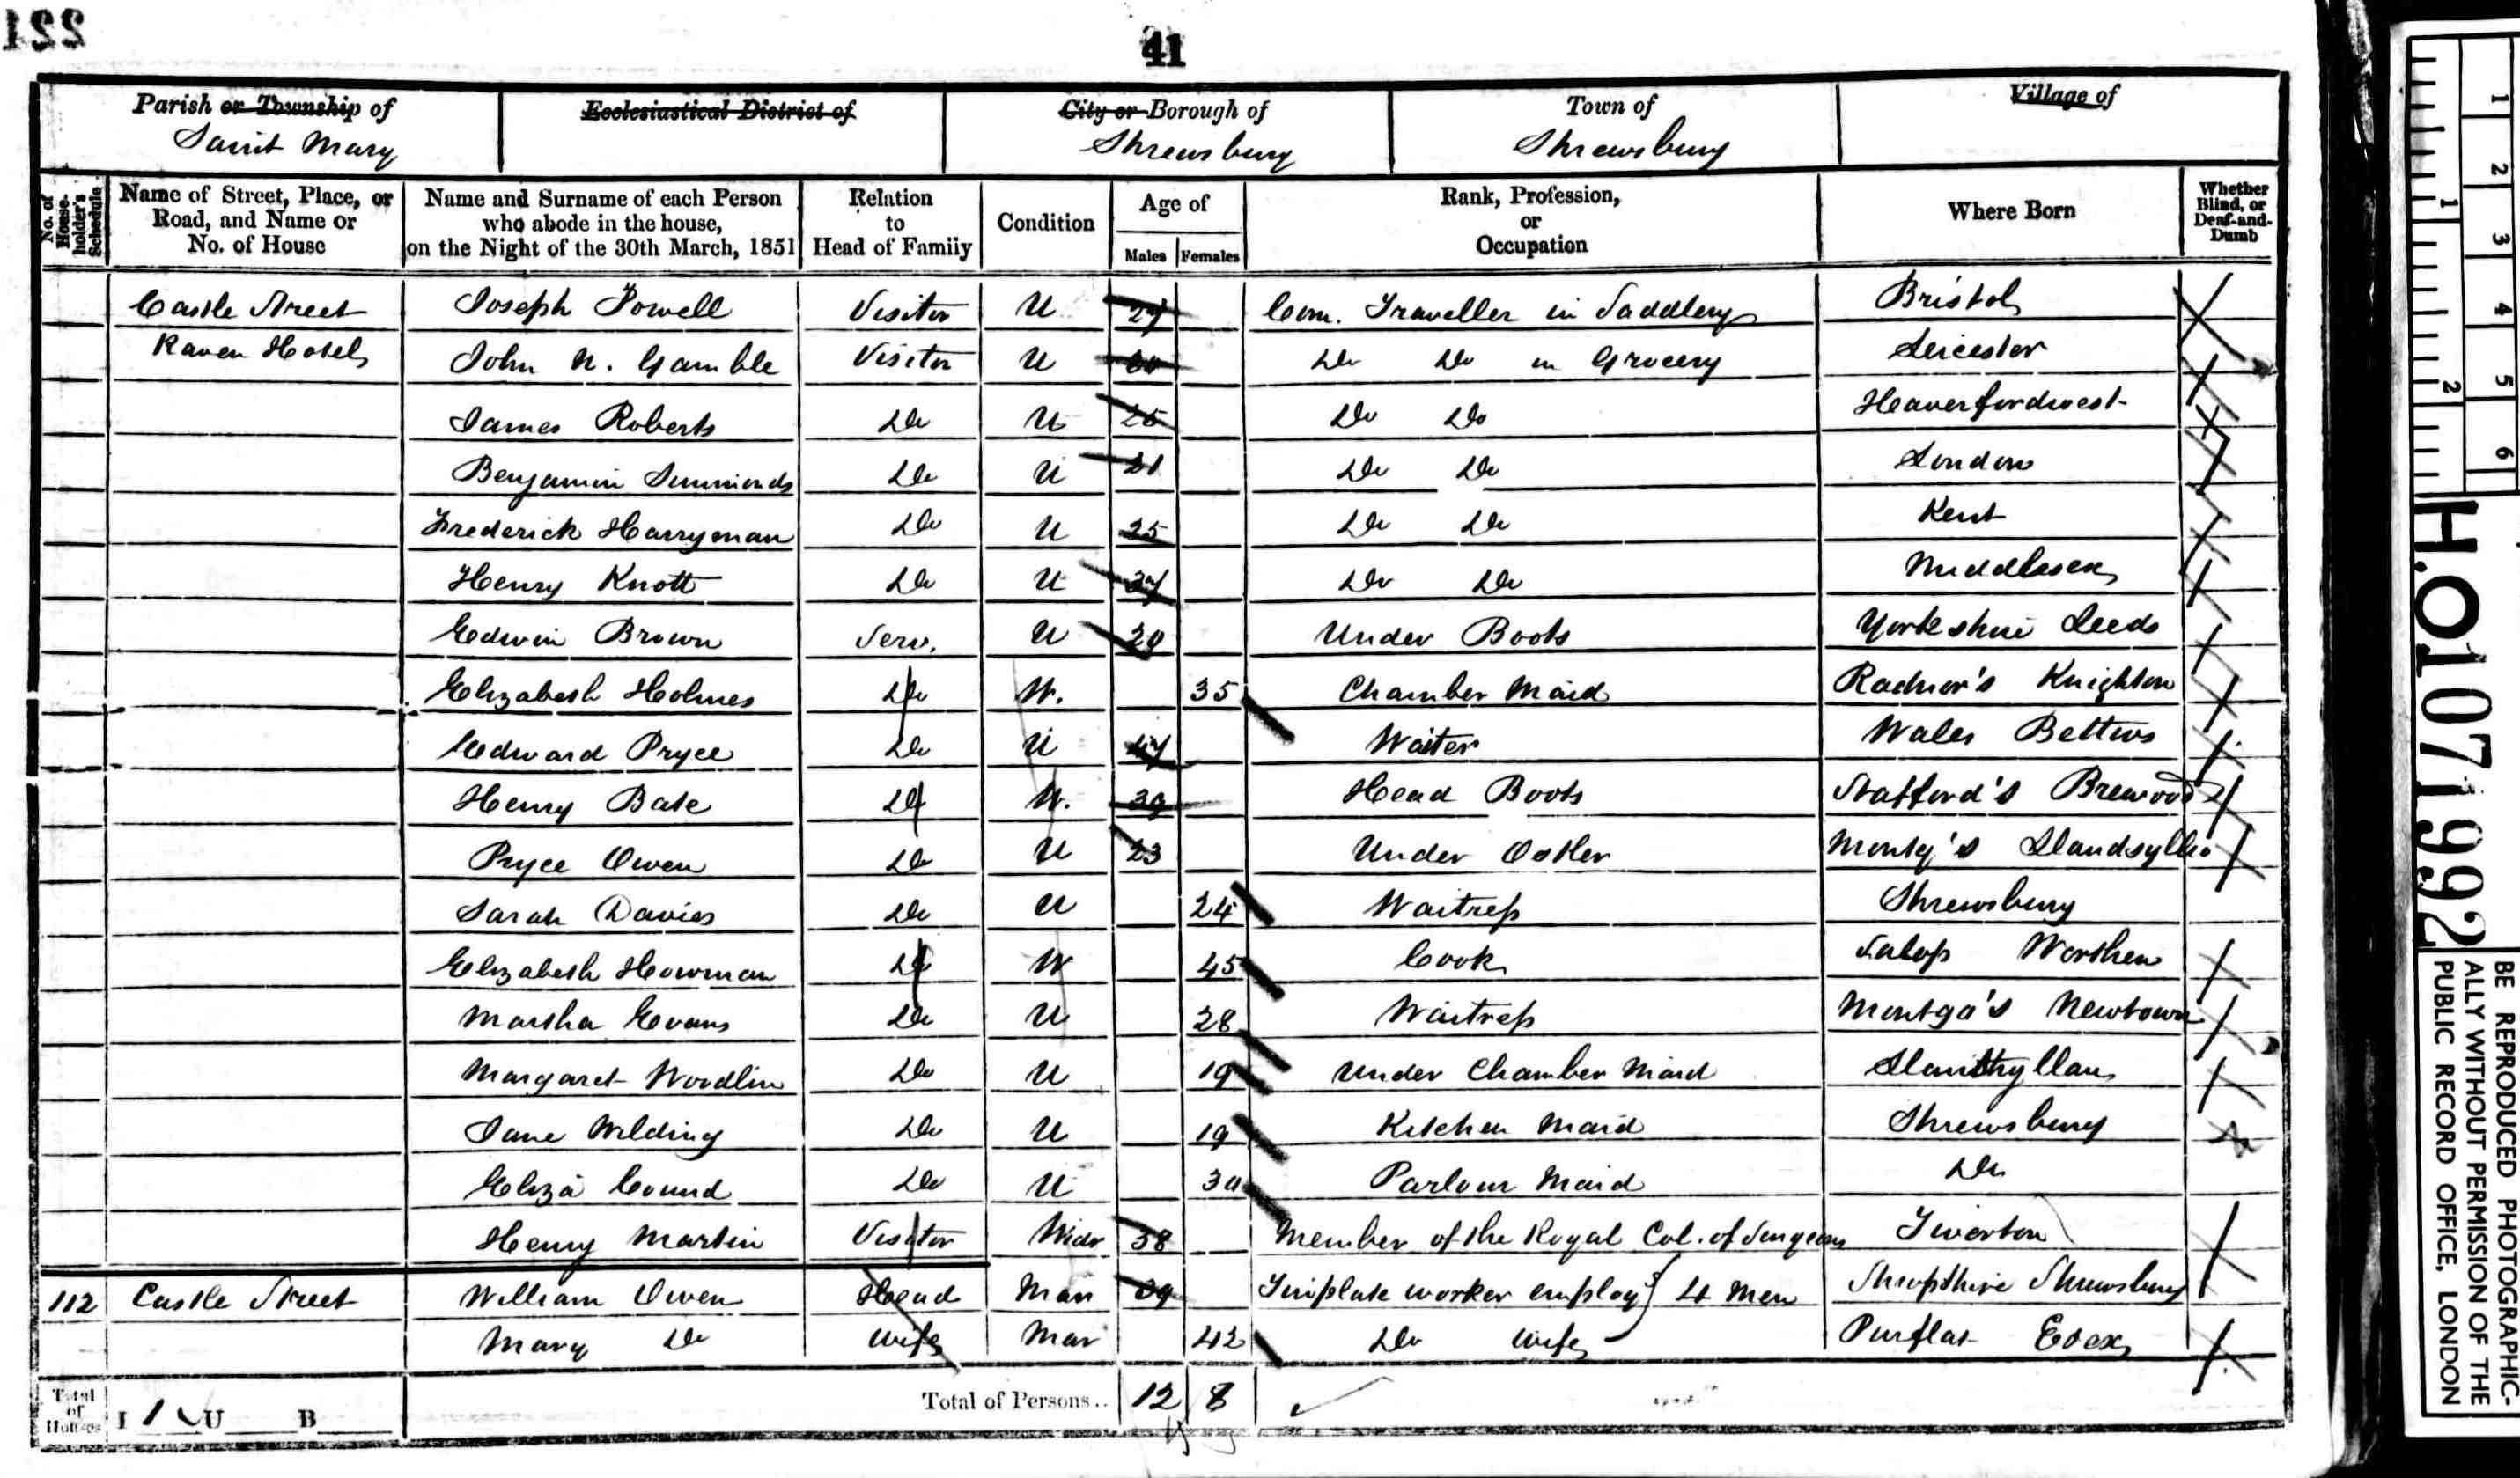 221
41
Parish or Township of
Saint Mary
Ecclesiastical District of
City or Borough of
Shrewsbury
Town of
Shrewsbury
Village of
No. of House-holder's Schedule
Name of Street, Place, or Road, and Name or No. of House
Name and Surname of each Person who abode in the house, on the Night of the 30th March, 1851
Relation to Head of Family
Condition
Age of
Males Females
Rank, Profession, or Occupation
Where Born
Whether Blind, or Deaf-and-Dumb
Castle Street Joseph Powell Visitor U 27 Com. Traveller in Saddlery Bristol
Raven Hotel John N. Gamble Visitor U Do Do in Grocery Leicester
James Roberts Do U 25 Do Do Haverfordwest
Benjamin Simmonds Do U 21 Do Do London
Frederick Harryman Do U 25 Do Do Kent
Henry Knott Do U Do Do Middlesex
Edwin Brown Serv. U 20 Under Boots Yorkshire Leeds
Elizabeth Holmes Do W. 35 Chamber Maid Radnor's Knighton
Edward Pryce Do U 47 Waiter Wales Bettws
Henry Bate Do W. 39 Head Boots Stafford's Brewood
Pryce Owen Do U 23 Under Ostler Montg's Llandsyllio
Sarah Davies Do U 24 Waitress Shrewsbury
Elizabeth Howman Do W 45 Cook Salop Worthen
Martha Evans Do U 28 Waitress Montgo's Newtown
Margaret Woodlin Do U 19 Under Chamber Maid
Jane Wilding Do U 19 Kitchen Maid Shrewsbury
Eliza Cound Do U 30 Parlour Maid Do
Henry Martin Visitor Widr 38 Member of the Royal Col. of Surgeons Tiverton
112 Castle Street William Owen Head Marr 39 Tinplate worker employg 4 Men Shropshire Shrewsbury
Mary Do Wife Mar 42 Do Wife Purflat Essex
Total of Houses I 1 U B Total of Persons.. 12 8
1 2 3 4 5 6
1 2
H.O 107 1992
BE REPRODUCED PHOTOGRAPHIC-
ALLY WITHOUT PERMISSION OF THE
PUBLIC RECORD OFFICE, LONDON